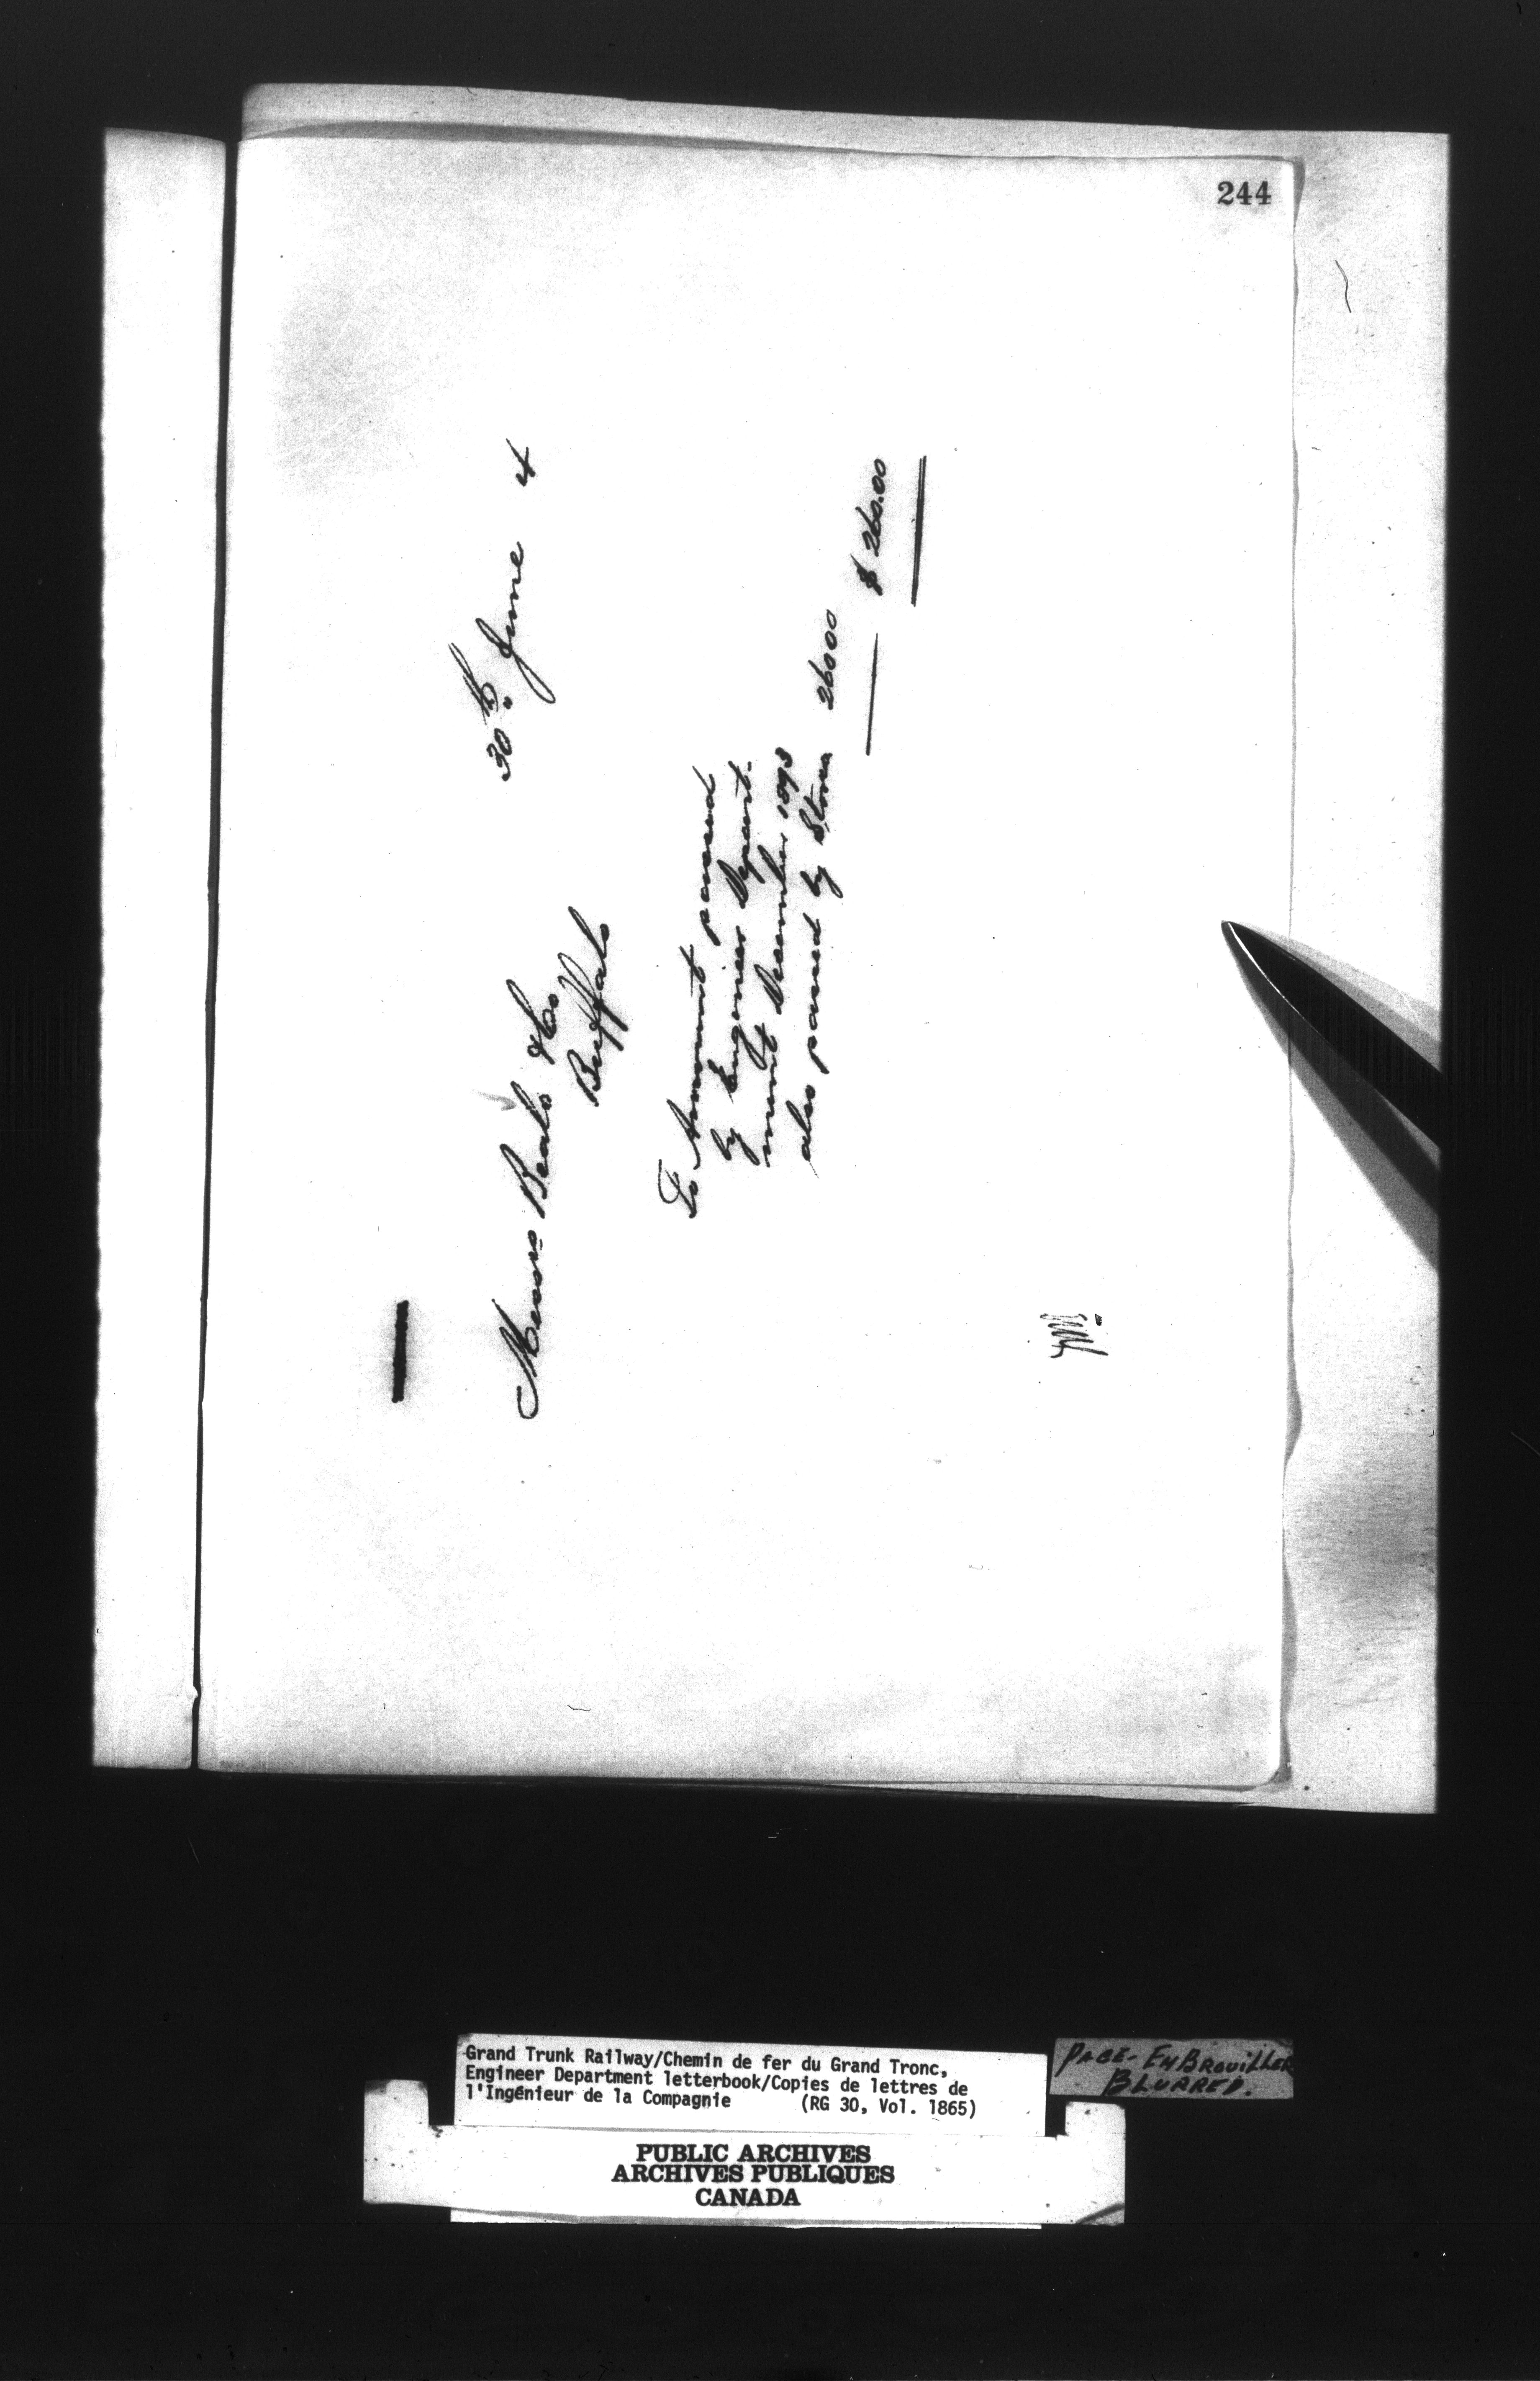 244
30th June 4
Messrs Beals & Co
Buffalo
To Amount passed
by Engineer Depart-
ment December 1893
also passed by Stores 260 00
$ 260.00
Grand Trunk Railway/Chemin de fer du Grand Tronc,
Engineer Department letterbook/Copies de lettres de
l'Ingénieur de la Compagnie (RG 30, Vol. 1865)
PAGE - EMBROUILLER
BLURRED.
PUBLIC ARCHIVES
ARCHIVES PUBLIQUES
CANADA